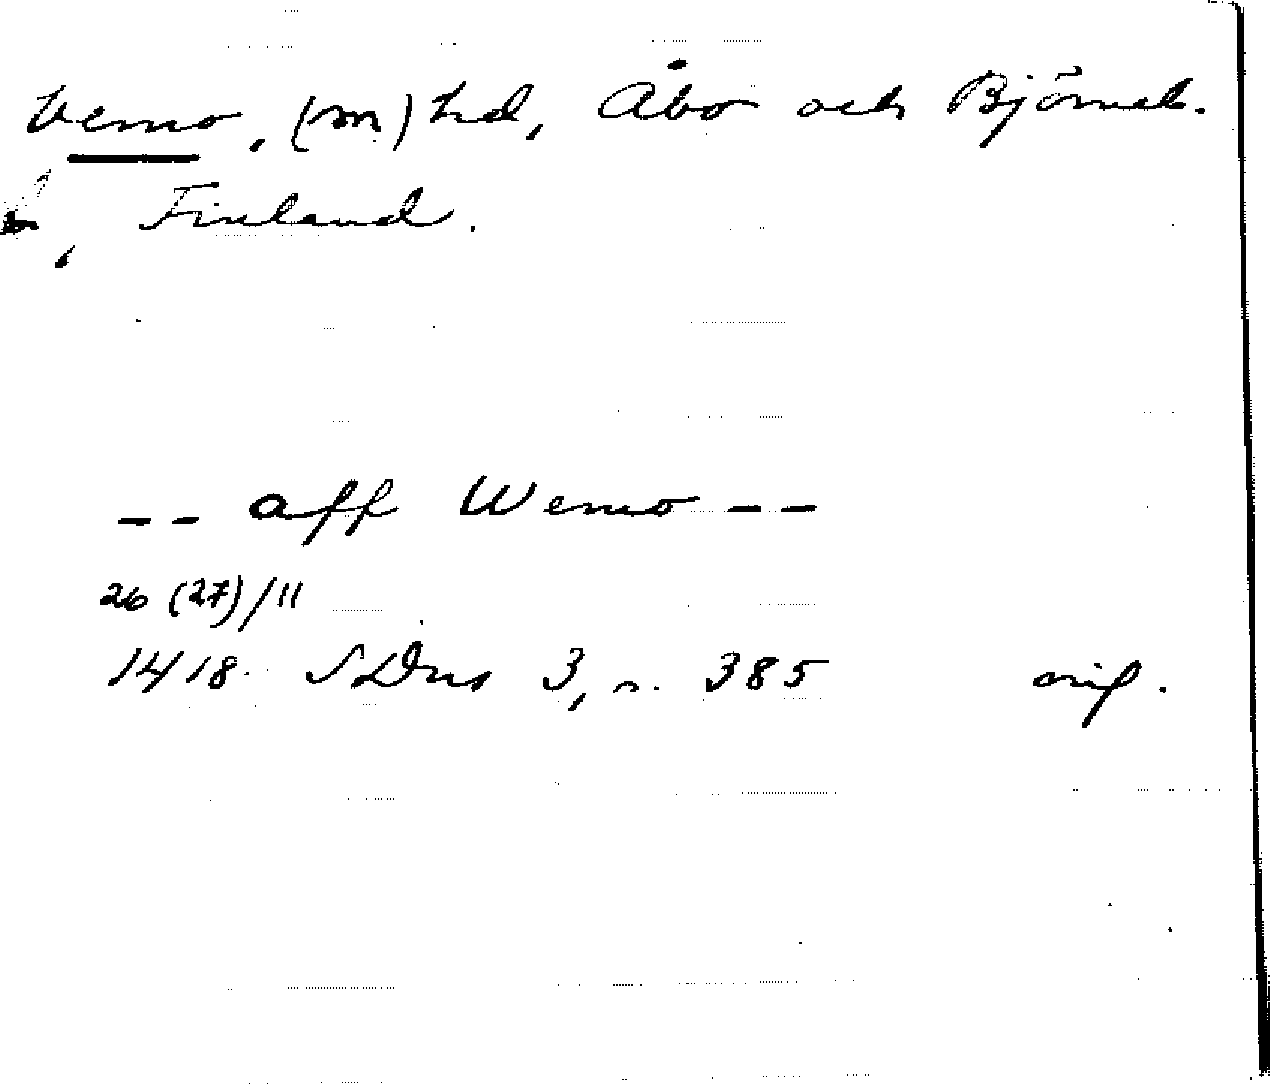 Vemo, (m) hd, Åbo och Björneb.
, Finland.
-- aff Wemo --
26 (27)/11
1418. SDns 3, n. 385 orig.